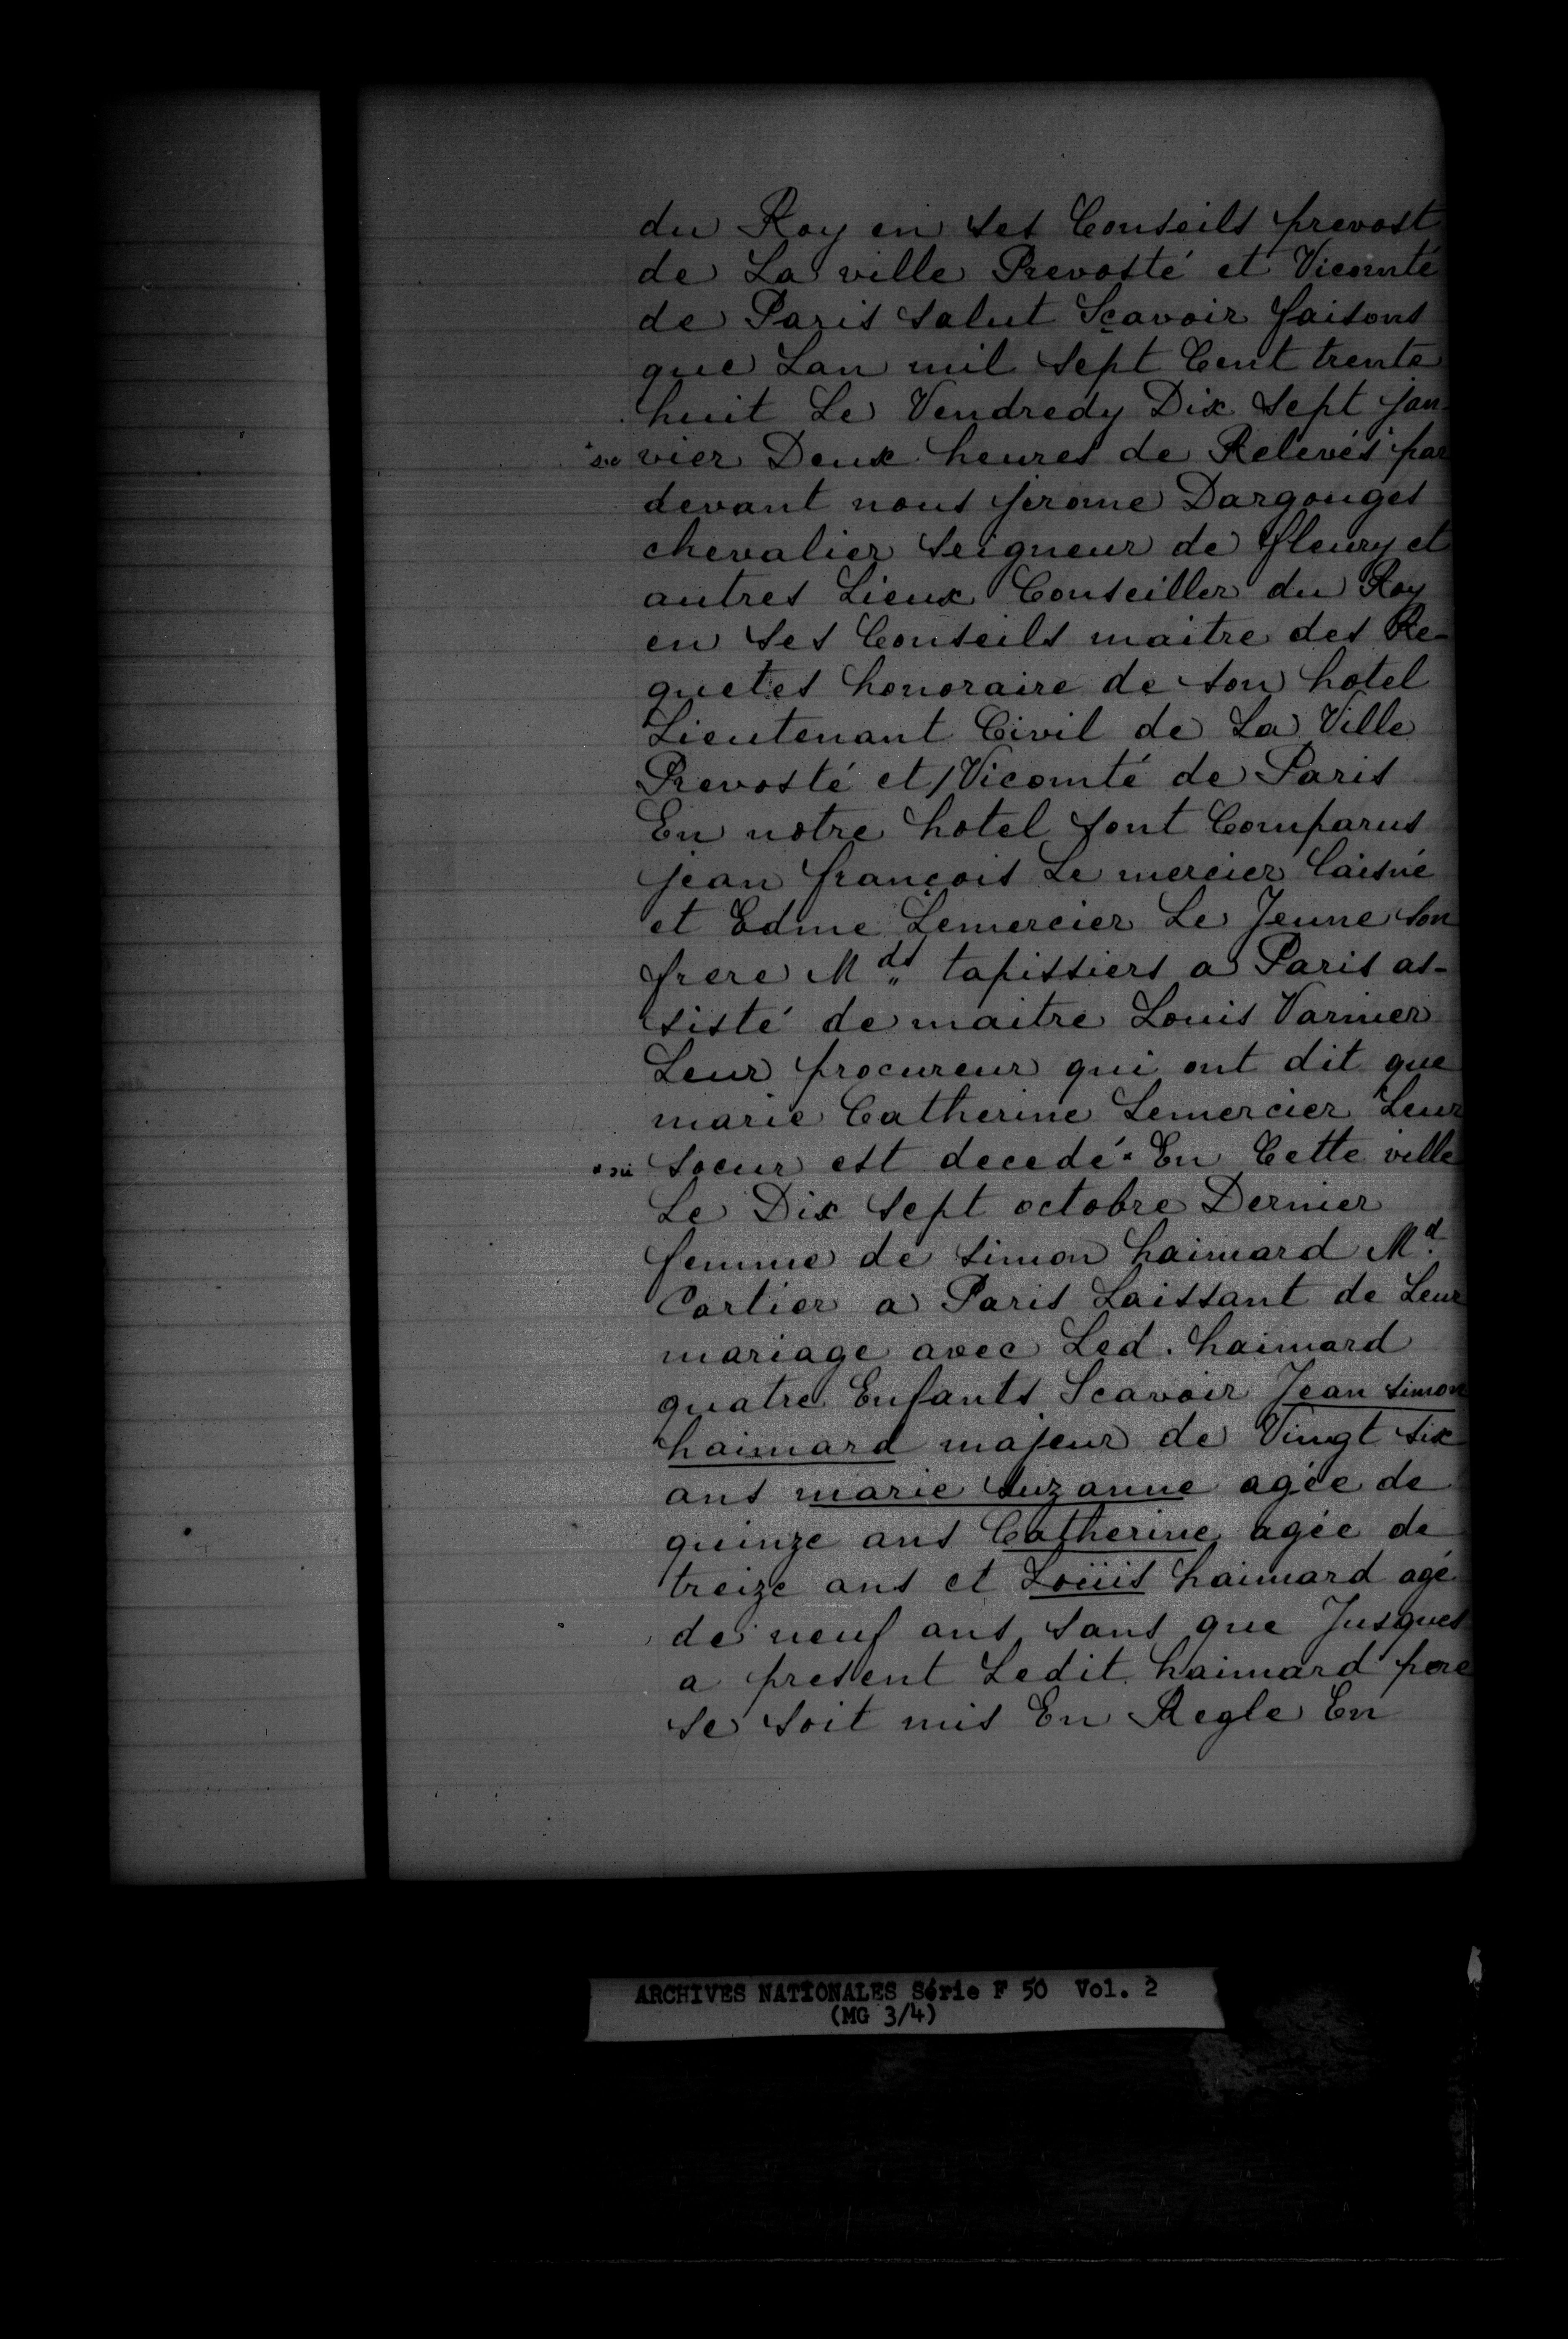 du Roy en ses Conseils prevost
de La ville Prevosté et Vicomté
de Paris salut Sçavoir faisons
que Lan mil sept Cent trente
huit Le Vendredy Dix sept jan-
*sic vier Deux heures de Relevés* par
devant nous jerome Dargouges
chevalier seigneur de fleury et
autres Lieux Conseiller du Roy
en ses Conseils maitre des Re-
quetes honoraire de son hotel
Lieutenant Civil de La Ville
Prevosté et Vicomté de Paris
En notre hotel sont Comparus
jean françois Le mercier Laisné
et Edme Lemercier Le Jeune son
frere Mds tapissiers a Paris as-
sisté de maitre Louis Varnier
Leur procureur qui ont dit que
marie Catherine Lemercier Leur
*sic soeur est decedé* En Cette ville
Le Dix sept octobre Dernier
femme de simon haimard Md.
Cartier a Paris Laissant de Leur
mariage avec Led. haimard
quatre Enfants Scavoir Jean simon
haimard majeur de Vingt six
ans marie suzanne agée de
quinze ans Catherine agée de
treize ans et Loüis haimard agé
de neuf ans sans que Jusques
a present Ledit haimard pere
se soit mis En Regle En
ARCHIVES NATIONALES Série F 50 Vol. 2
(MG 3/4)